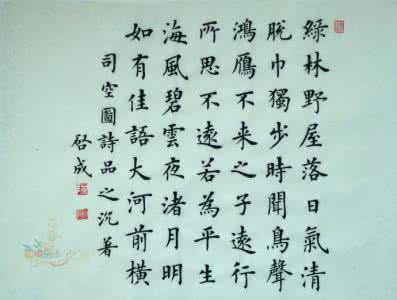 綠林野屋落日氣清
脫巾獨步時聞鳥聲
鴻鴈不來之子遠行
所思不遠若為平生
海風碧雲夜渚月明
如有佳語大河前橫
司空圖詩品之沉著
啓成